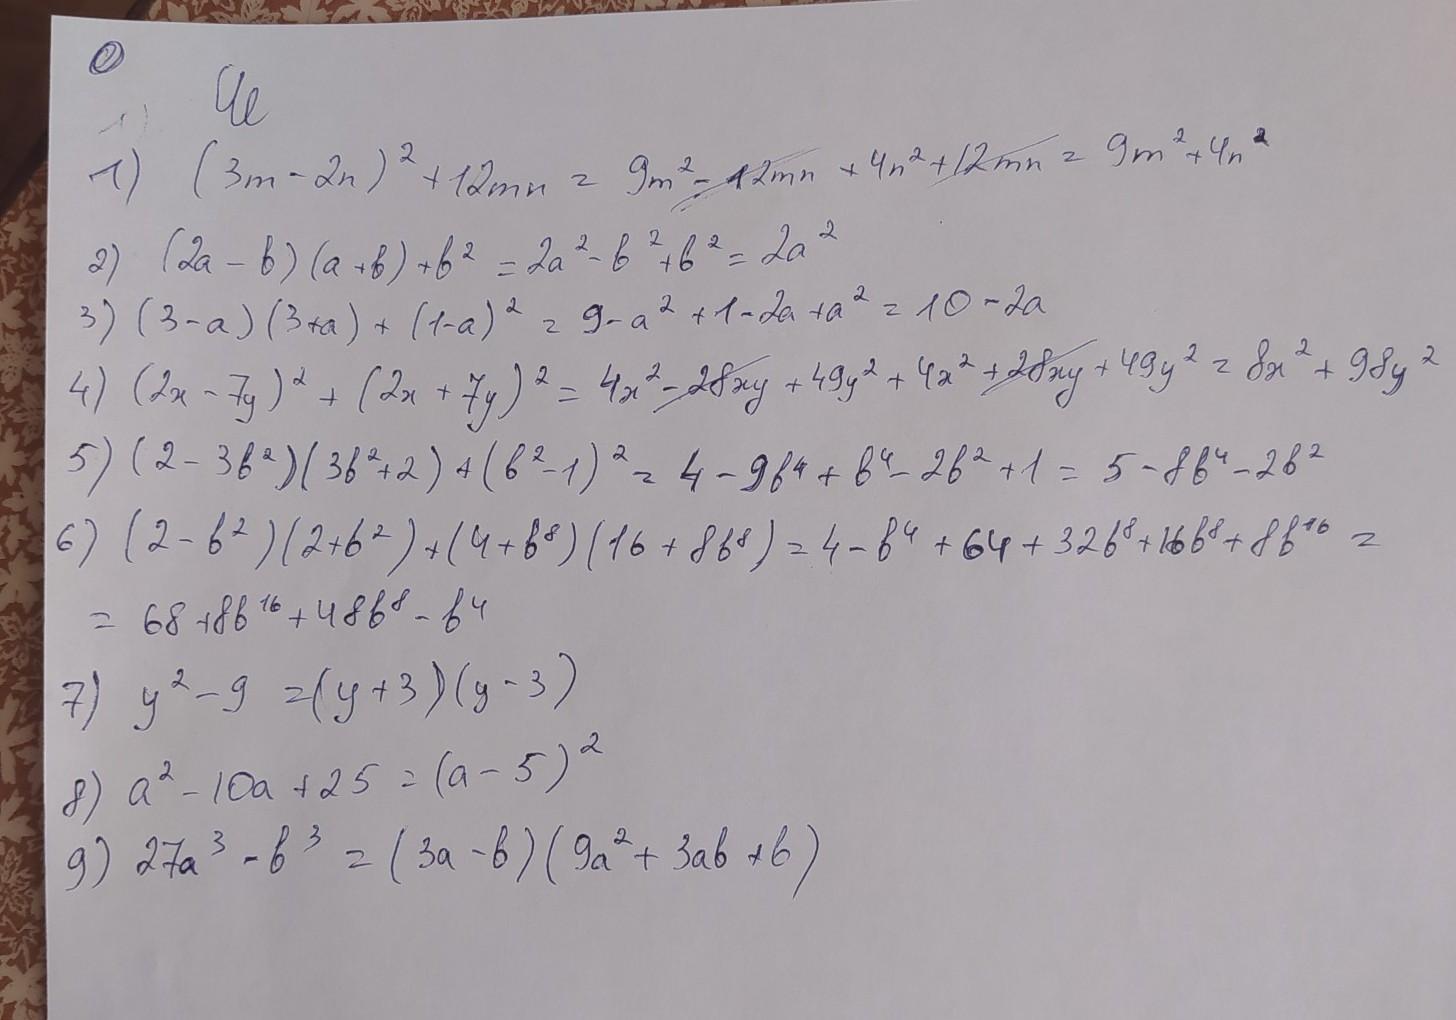 1) (3m - 2n)² + 12mn = 9m² - 12mn + 4n² + 12mn = 9m² + 4n²
2) (2a - b)(a + b) + b² = 2a² - b² + b² = 2a²
3) (3 - a)(3 + a) + (1 - a)² = 9 - a² + 1 - 2a + a² = 10 - 2a
4) (2x - 7y)² + (2x + 7y)² = 4x² - 28xy + 49y² + 4x² + 28xy + 49y² = 8x² + 98y²
5) (2 - 3b²)(3b² + 2) + (b² - 1)² = 4 - 9b⁴ + b⁴ - 2b² + 1 = 5 - 8b⁴ - 2b²
6) (2 - b²)(2 + b²) + (4 + b⁸)(16 + 8b⁸) = 4 - b⁴ + 64 + 32b⁸ + 16b⁸ + 8b¹⁶ =
= 68 + 8b¹⁶ + 48b⁸ - b⁴
7) y² - 9 = (y + 3)(y - 3)
8) a² - 10a + 25 = (a - 5)²
9) 27a³ - b³ = (3a - b)(9a² + 3ab + b)